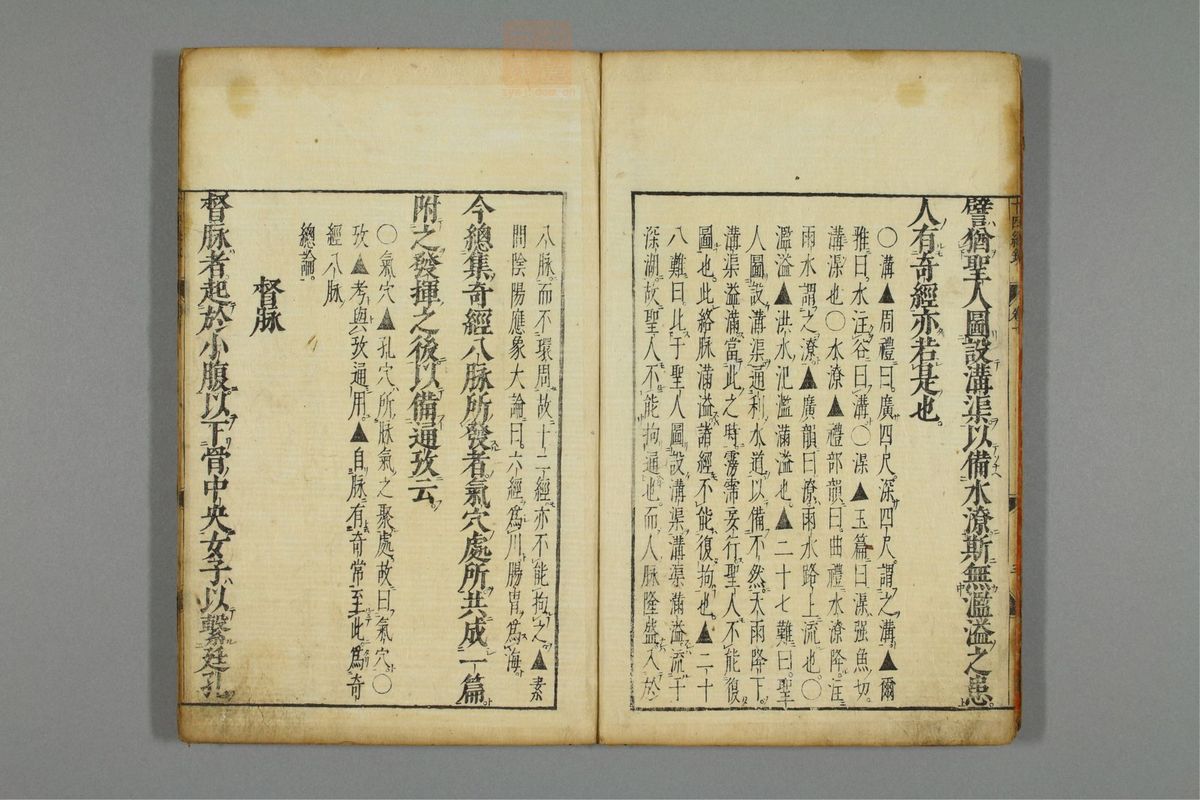 譬猶聖人圖設溝渠以備水潦斯無濫溢之患
人有奇經亦若是也
〇溝▲周禮曰廣四尺深四尺謂之溝▲爾
雅曰水注谷曰溝〇渠▲玉篇曰渠強魚切
溝渠也〇水潦▲禮部韻曰曲禮水潦降注
雨水謂之潦▲廣韻曰潦雨水路上流也〇
濫溢▲洪水氾濫滿溢也▲二十七難曰聖
人圖設溝渠通利水道以備不然天雨降下
溝渠溢滿當此之時霶霈妄行聖人不能復
圖也此絡脉滿溢諸經不能復拘也▲二十
八難曰比于聖人圖設溝渠溝渠滿溢流于
深湖故聖人不能拘通也而人脉隆盛入於
八脉而不環周故十二經亦不能拘之▲素
問陰陽應象大論曰六經爲川腸胃爲海
今總集奇經八脉所發者氣穴處所共成一篇
附之發揮之後以備通攷云
〇氣穴▲孔穴所脉氣之聚處故曰氣穴〇
攷▲考與攷通用▲自脉有奇常至此爲奇
經八脉
總論
督脉
督脉者起於小腹以下骨中央女子以繫廷孔